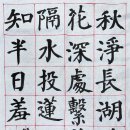 秋淨長湖
花深處繫
隔水投蓮
知半日羞